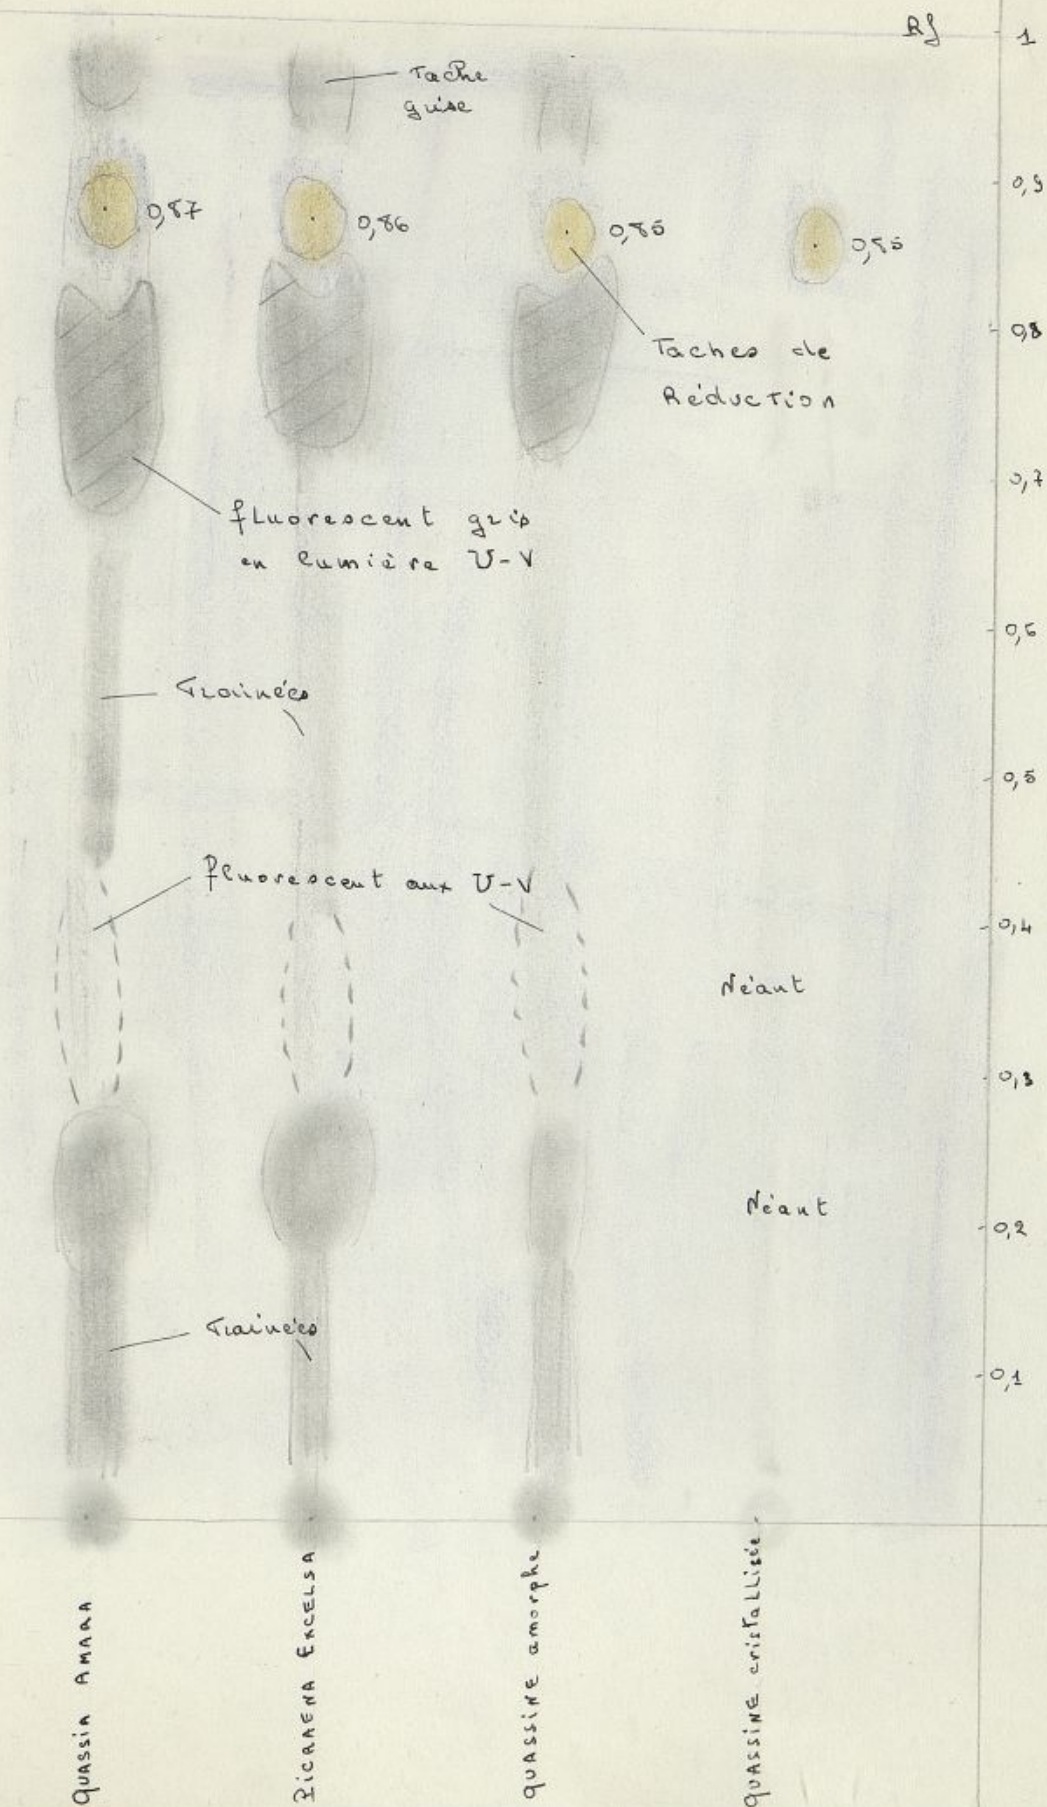 Rf
1
Tache
grise
0,9
0,87
0,86
0,85
0,85
0,8
Taches de
Réduction
0,7
fluorescent gris
en lumière U-V
0,6
Trainées
0,5
fluorescent aux U-V
0,4
Néant
0,3
Néant
0,2
Trainées
0,1
QUASSIA AMARA
PICRAENA EXCELSA
QUASSINE amorphe
QUASSINE cristallisée